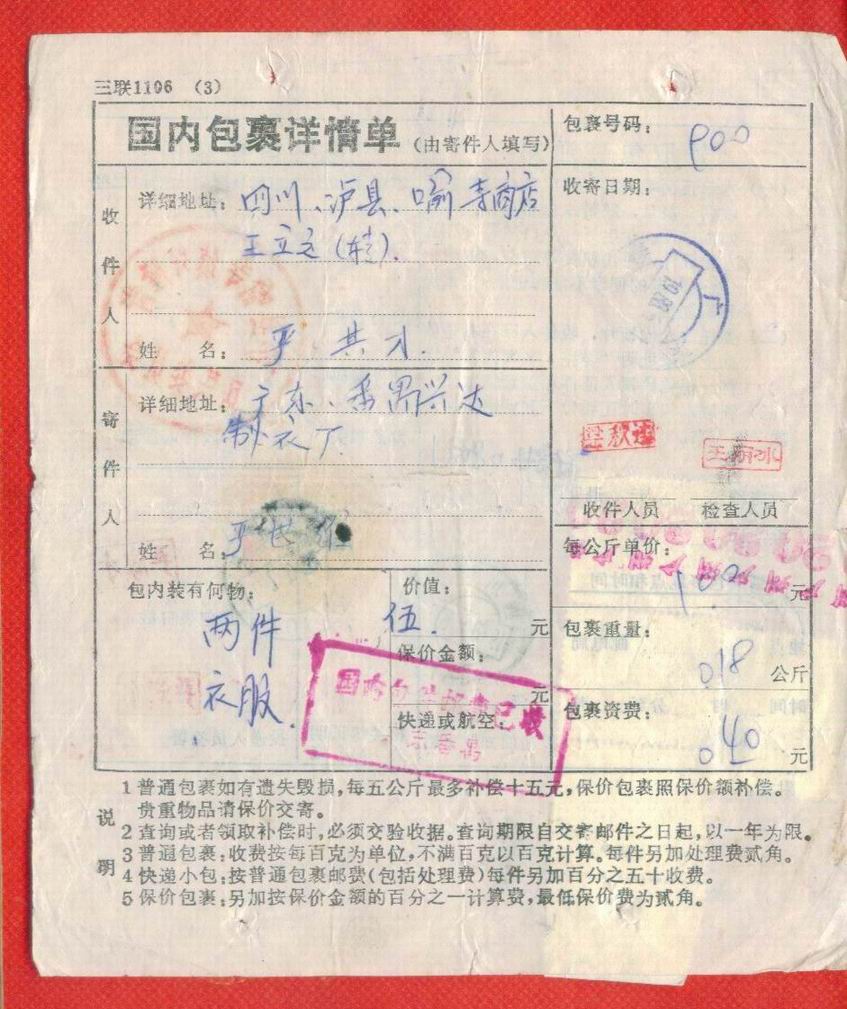 三联1106 (3)
国内包裹详情单 (由寄件人填写)
包裹号码:
900
收件人
详细地址: 四川、泸县、喻寺商店
王立之(转).
姓名: 严共才.
收寄日期:
寄件人
详细地址: 广东、番禺兴达
制衣厂.
姓名: 严世
收件人员
王丽冰
检查人员
每公斤单价:
1.00 元
包内装有何物:
两件
衣服.
价值:
伍. 元
保价金额:
元
快递或航空:
国内包裹邮费已收
包裹重量:
0.18 公斤
包裹资费:
0.40 元
说明
1 普通包裹如有遗失毁损,每五公斤最多补偿十五元,保价包裹照保价额补偿。
贵重物品请保价交寄。
2 查询或者领取补偿时,必须交验收据。查询期限自交寄邮件之日起,以一年为限。
3 普通包裹:收费按每百克为单位,不满百克以百克计算。每件另加处理费贰角。
4 快递小包:按普通包裹邮费(包括处理费)每件另加百分之五十收费。
5 保价包裹:另加按保价金额的百分之一计算费,最低保价费为贰角。